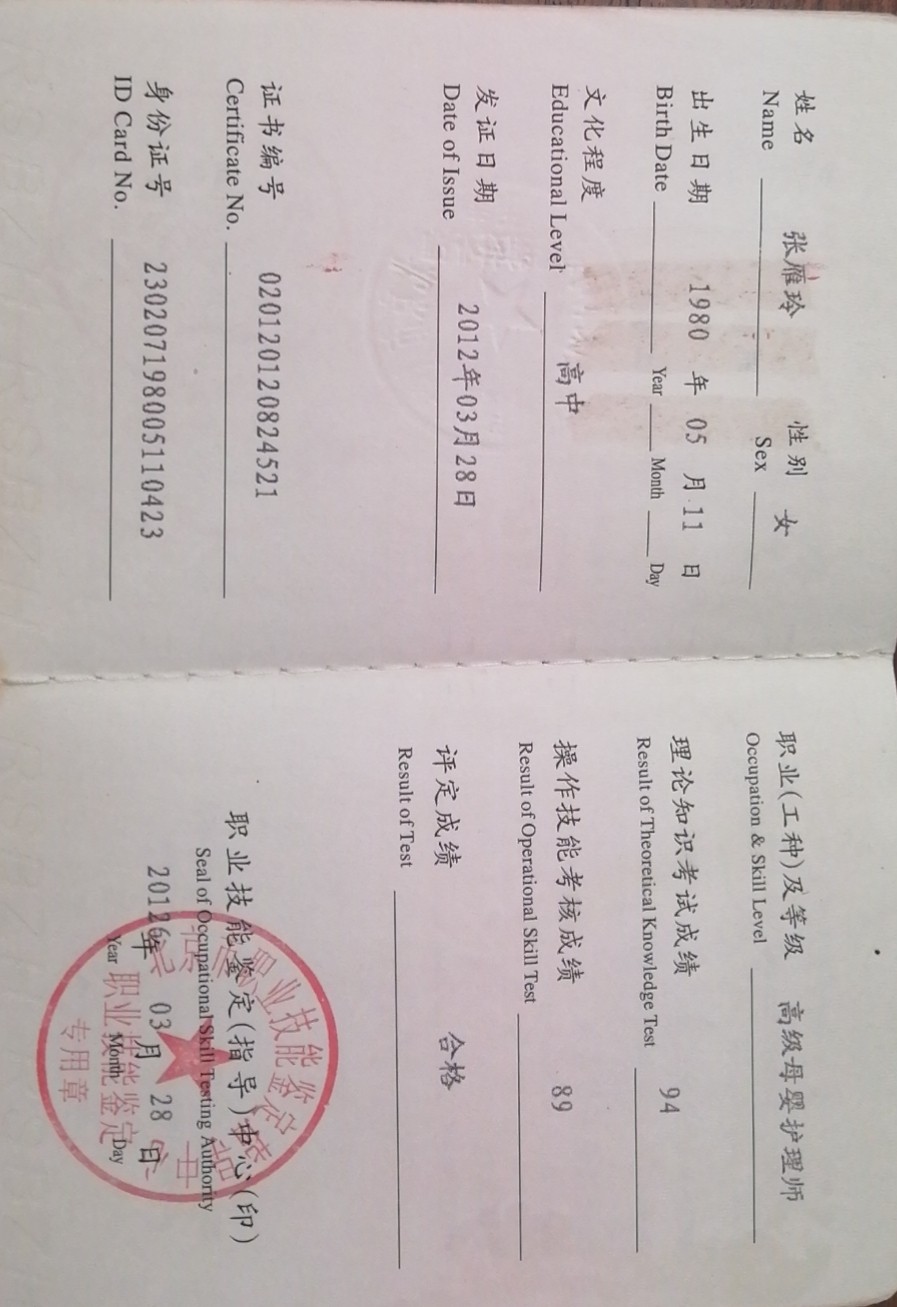 姓名 张雁玲 性别 女
Name Sex
出生日期 1980 年 05 月 11 日
Birth Date Year Month Day
文化程度 高中
Educational Level
发证日期 2012年03月28日
Date of Issue
证书编号 020120120824521
Certificate No.
身份证号 230207198005110423
ID Card No.
职业(工种)及等级 高级母婴护理师
Occupation & Skill Level
理论知识考试成绩 94
Result of Theoretical Knowledge Test
操作技能考核成绩 89
Result of Operational Skill Test
评定成绩 合格
Result of Test
职业技能鉴定(指导)中心(印)
Seal of Occupational Skill Testing Authority
年 03 月 28 日
Year Month Day
职业技能鉴定
专用章